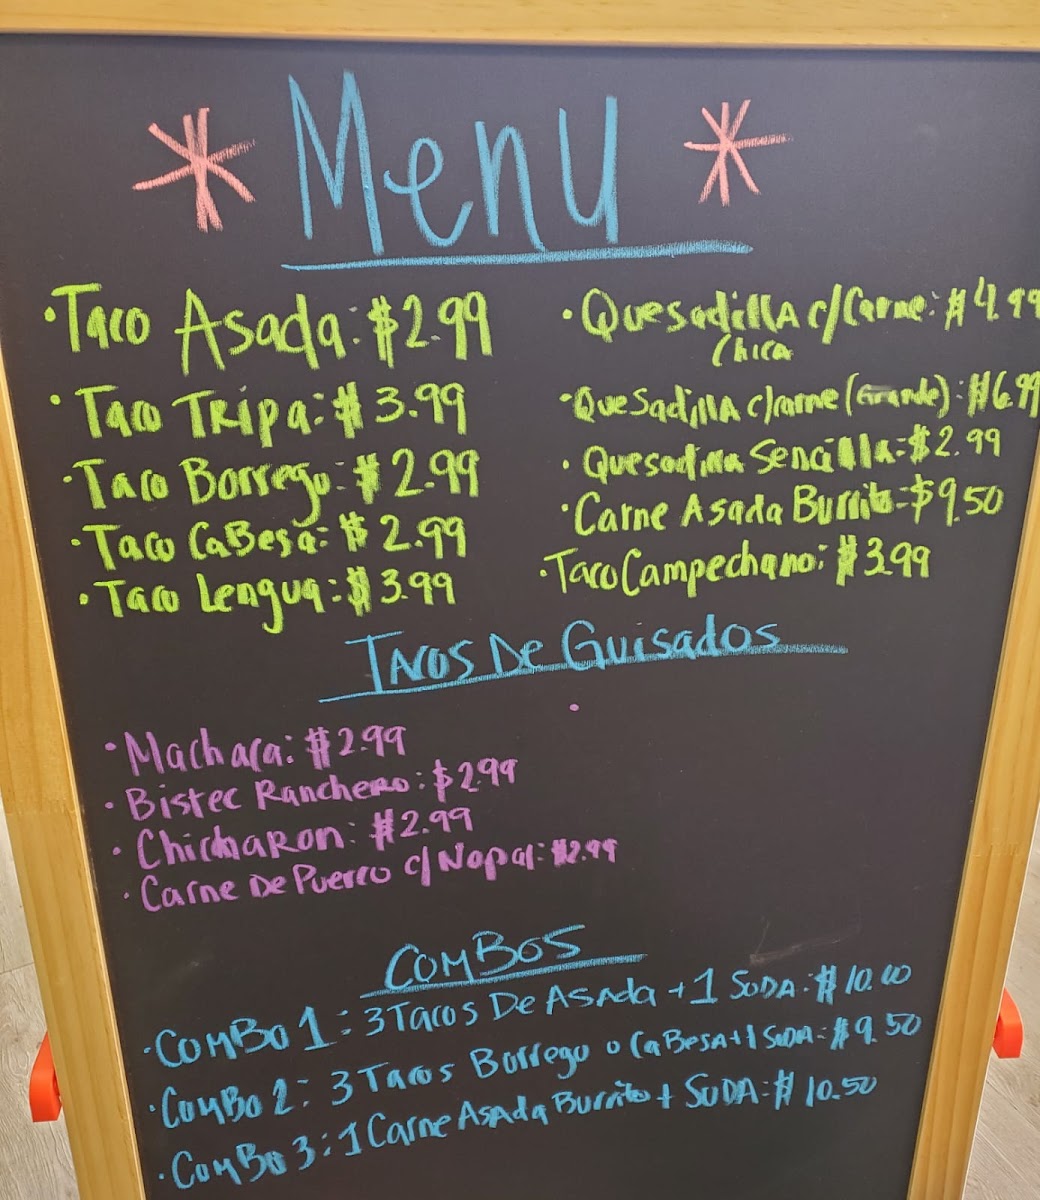 * Menu *
• Taco Asada: $2.99
• Taco Tripa: $3.99
• Taco Borrego: $2.99
• Taco CaBesa: $2.99
• Taco Lengua: $3.99
• Quesadilla c/Carne: $4.99
Chica
• Quesadilla c/carne (Grande): $6.99
• Quesadilla Sencilla: $2.99
• Carne Asada Burrito: $9.50
• Taco Campechano: $3.99
Tacos De Guisados
• Machaca: $2.99
• Bistec Ranchero: $2.99
• Chicharon: $2.99
• Carne De Puerco c/Nopal: $2.99
ComBos
• ComBo 1: 3 Tacos De Asada + 1 SoDA: $10.00
• ComBo 2: 3 Tacos Borrego o CaBesa + 1 SoDA: $9.50
• ComBo 3: 1 Carne Asada Burrito + SoDA: $10.50